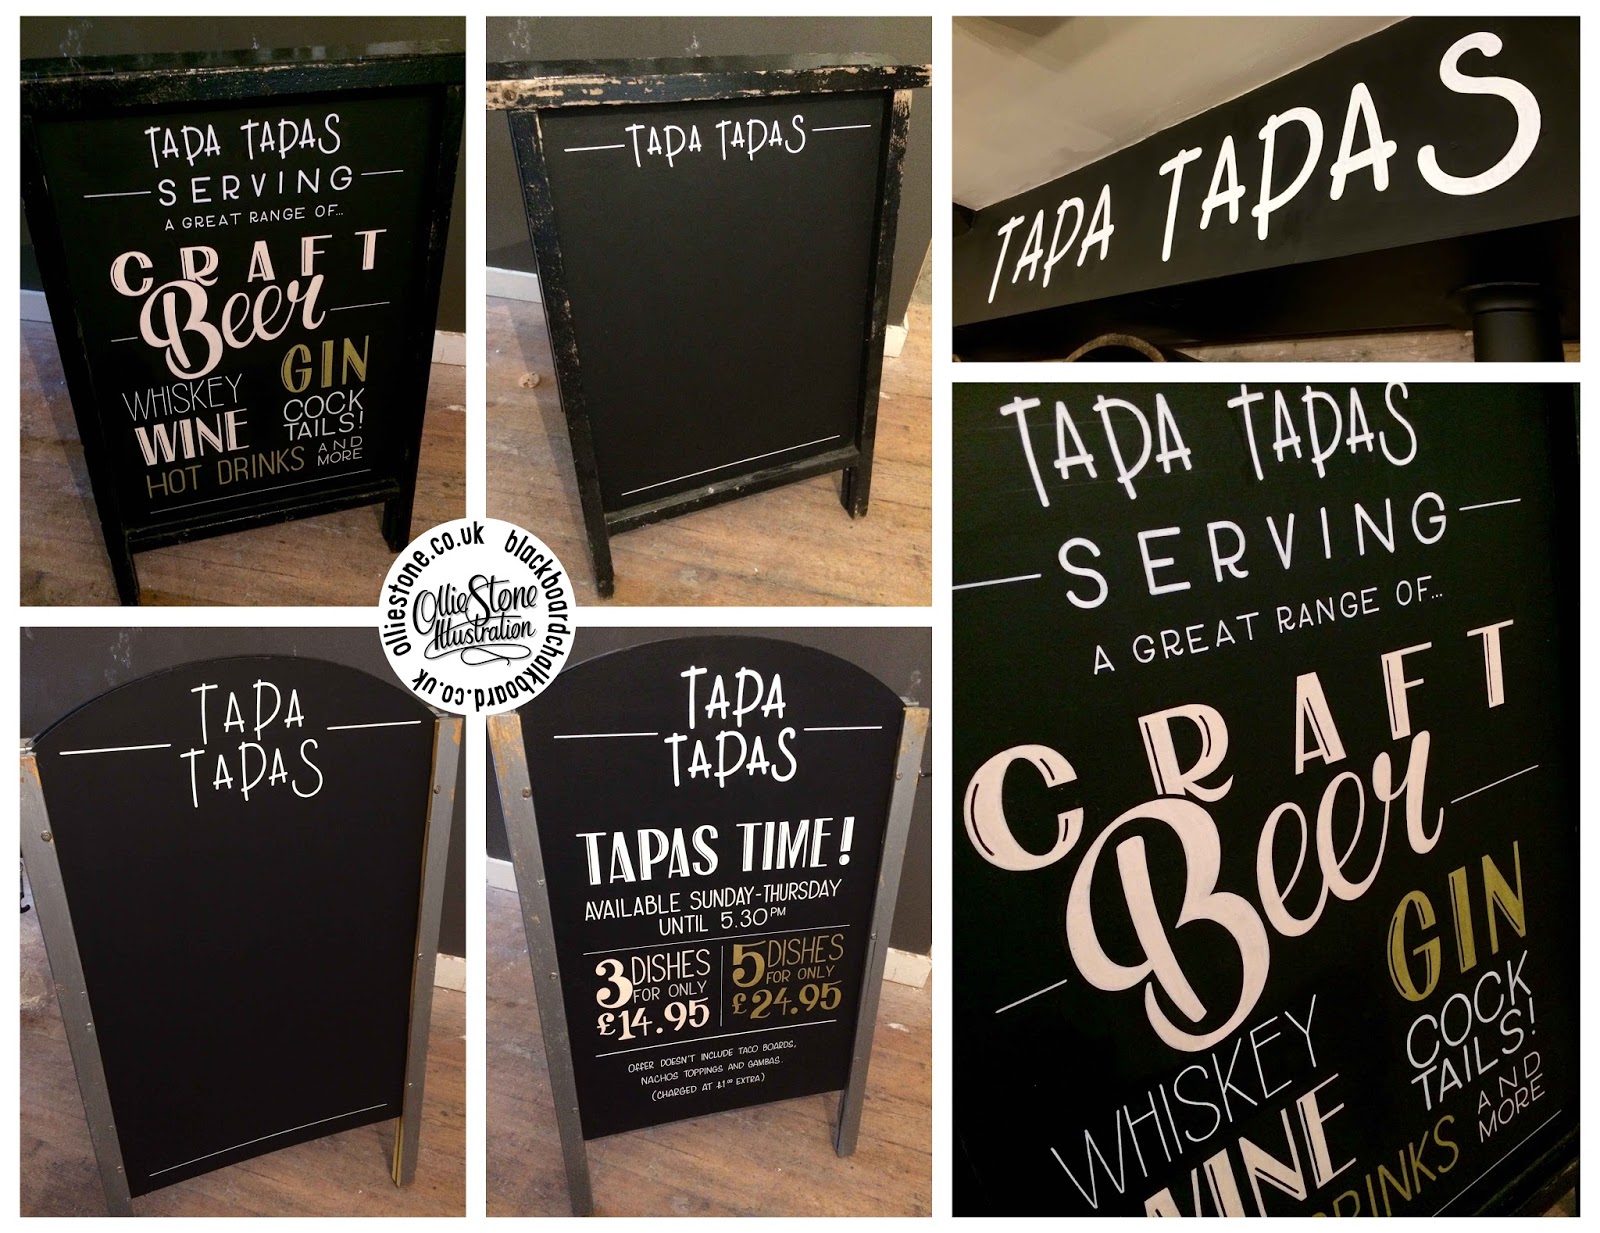 TAPA TAPAS
SERVING
A GREAT RANGE OF...
CRAFT
Beer
GIN
WHISKEY
COCK
TAILS!
WINE
AND
MORE
HOT DRINKS
TAPA TAPAS
TAPA TAPAS
olliestone.co.uk
blackboardchalkboard.co.uk
Ollie Stone
Illustration
TAPA
TAPAS
TAPA
TAPAS
TAPAS TIME!
AVAILABLE SUNDAY-THURSDAY
UNTIL 5.30PM
3 DISHES
FOR ONLY
£14.95
5 DISHES
FOR ONLY
£24.95
OFFER DOESN'T INCLUDE TACO BOARDS,
NACHOS TOPPINGS AND GAMBAS.
(CHARGED AT £1.00 EXTRA)
TAPA TAPAS
SERVING
A GREAT RANGE OF...
CRAFT
Beer
GIN
WHISKEY
COCK
TAILS!
WINE
AND
MORE
DRINKS